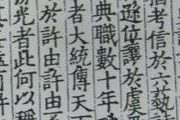 猶考信於六藝
遜位讓於虞
典職數十年
者大統傳天下
於許由許由
光者此何以稱